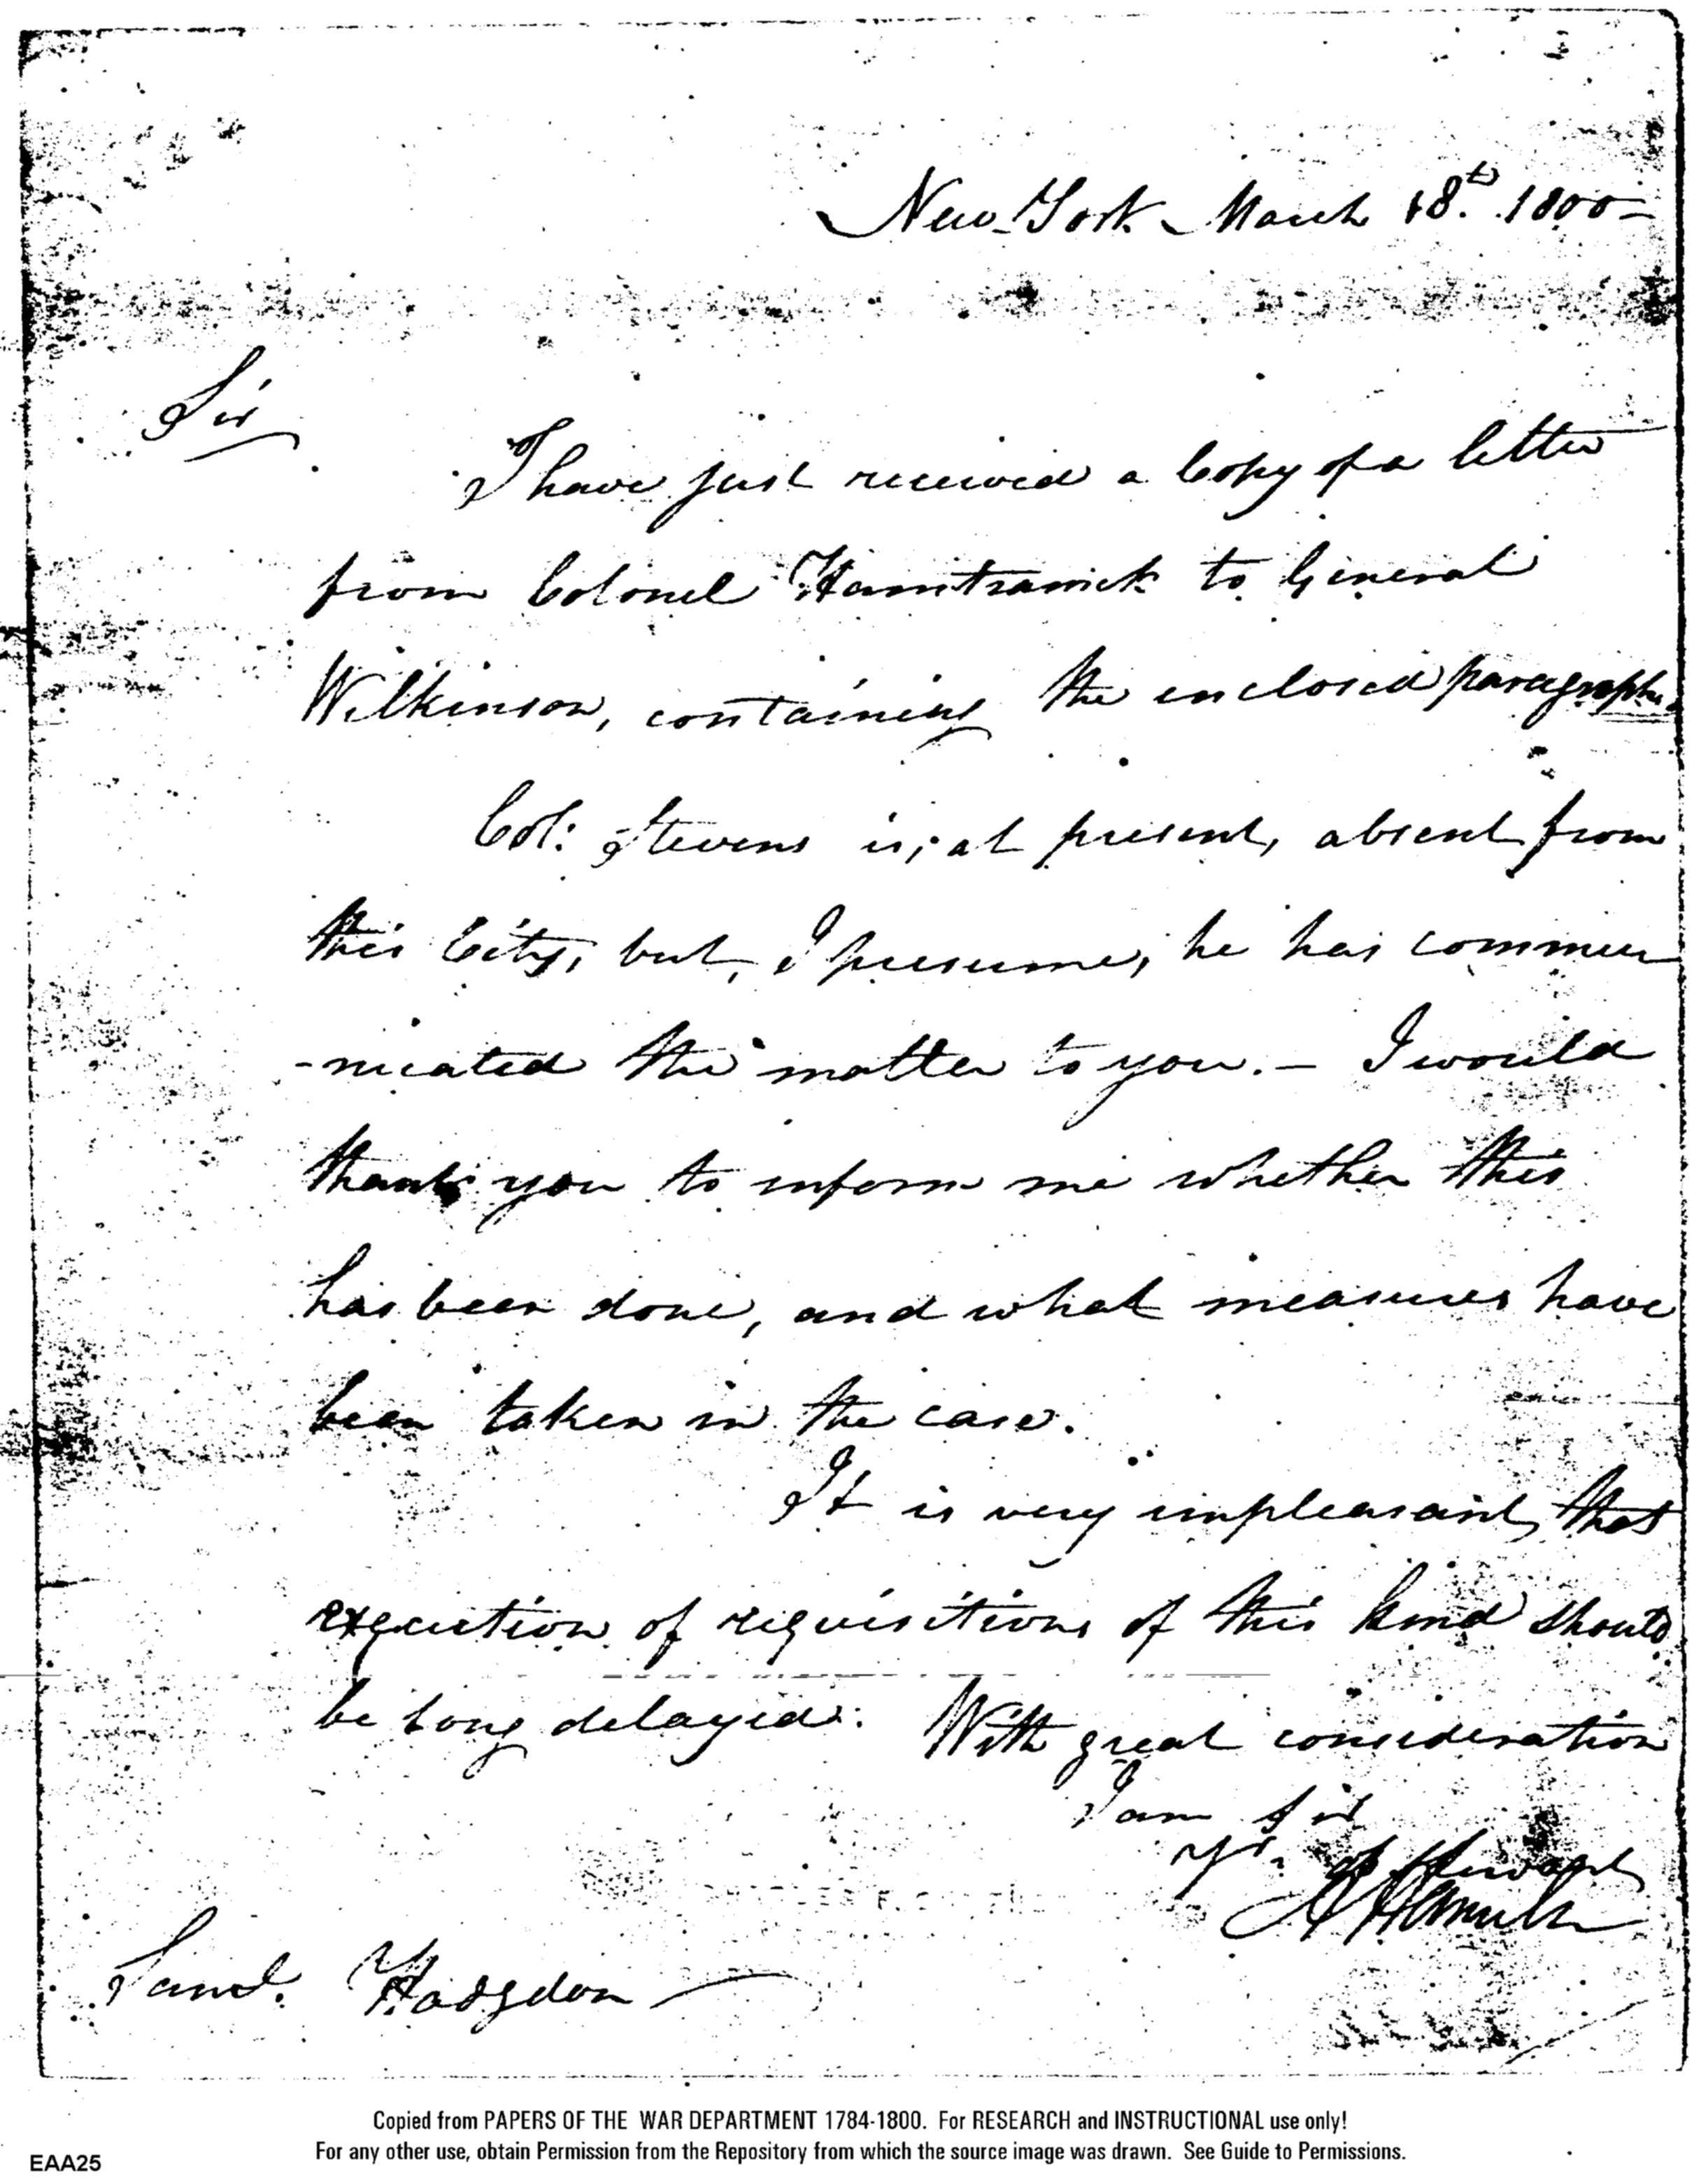 New York March 18th. 1800 –
Sir
I have just received a Copy of a letter
from Colonel Hamtramck to General
Wilkinson, containing the enclosed paragraph.
Col: Stevens is, at present, absent from
this City, but, I presume, he has commu
-nicated the matter to you. – I would
thank you to inform me whether this
has been done, and what measures have
been taken in the case.
It is very unpleasant, that
execution of requisitions of this kind should
be long delayed. With great consideration
I am Sir
Yr. ob servant
A Hamilton
Saml. Hodgdon
Copied from PAPERS OF THE WAR DEPARTMENT 1784-1800. For RESEARCH and INSTRUCTIONAL use only!
For any other use, obtain Permission from the Repository from which the source image was drawn. See Guide to Permissions.
EAA25